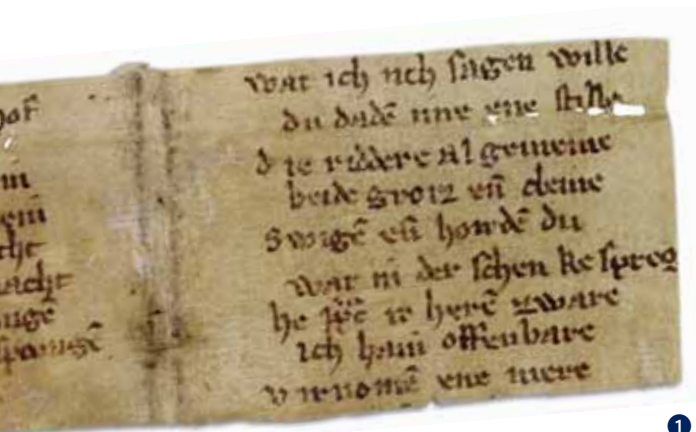 hof
m
em
cht
acht
wat ich uch sagen wille
du dadē ene stille
d ie riddere algemeine
beide groiz eñ cleine
S wigē eñ hordē du
wat der schenke spreg
he ir herē zware
ich hain offenbare
v irnomē ene mere
1